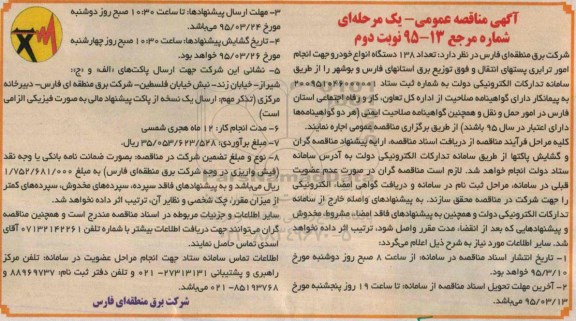 آگهی مناقصه عمومی- یک مرحله‌ای
شماره مرجع ۱۳-۹۵ نوبت دوم
شرکت برق منطقه‌ای فارس در نظر دارد: تعداد ۱۳۸ دستگاه انواع خودرو جهت انجام
امور ترابری پستهای انتقال و فوق توزیع برق استانهای فارس و بوشهر را از طریق
سامانه تدارکات الکترونیکی دولت به شماره ثبت ستاد
به پیمانکار دارای گواهینامه صلاحیت از اداره کل تعاون، کار و رفاه اجتماعی استان
فارس در امور حمل و نقل و همچنین گواهینامه صلاحیت ایمنی (هر دو گواهینامه‌ها
دارای اعتبار در سال ۹۵ باشند) از طریق برگزاری مناقصه عمومی اجاره نمایند.
کلیه مراحل فرآیند مناقصه از دریافت اسناد مناقصه، ارایه پیشنهاد مناقصه گران
و گشایش پاکتها از طریق سامانه تدارکات الکترونیکی دولت به آدرس سامانه
ستاد دولت انجام خواهد شد. لازم است مناقصه گران در صورت عدم عضویت
قبلی در سامانه، مراحل ثبت نام در سامانه و دریافت گواهی امضاء الکترونیکی
را جهت شرکت در مناقصه محقق سازند. به پیشنهادهای واصله خارج از سامانه
تدارکات الکترونیکی دولت و همچنین به پیشنهادهای فاقد امضاء، مشروط، مخدوش
و پیشنهادهایی که بعد از انقضاء مدت مقرر واصل شود، ترتیب اثر داده نخواهد
شد. سایر اطلاعات مورد نیاز به شرح ذیل اعلام می‌گردد:
۱- تاریخ انتشار اسناد مناقصه در سامانه: از ساعت ۸ صبح روز دوشنبه مورخ
۹۵/۳/۱۰ خواهد بود.
۲- آخرین مهلت تحویل اسناد مناقصه از سامانه: تا ساعت ۱۹ روز پنجشنبه مورخ
۹۵/۰۳/۱۳ می‌باشد.
۳- مهلت ارسال پیشنهادها: تا ساعت ۱۰:۳۰ صبح روز دوشنبه
مورخ ۹۵/۰۳/۲۴ می‌باشد.
۴- تاریخ گشایش پیشنهادها: ساعت ۱۰:۳۰ صبح روز چهارشنبه
مورخ ۹۵/۰۳/۲۶ خواهد بود.
۵- نشانی این شرکت جهت ارسال پاکت‌های «الف و ج»:
شیراز- خیابان زند- نبش خیابان فلسطین- شرکت برق منطقه ای فارس- دبیرخانه
مرکزی (تذکر مهم: ارسال یک نسخه از پاکت پیشنهاد مالی به صورت فیزیکی الزامی
است)
۶- مدت انجام کار: ۱۲ ماه هجری شمسی
۷- مبلغ برآوردی: ۳۵/۰۵۳/۶۲۳/۵۲۸ ریال
۸- نوع و مبلغ تضمین شرکت در مناقصه: بصورت ضمانت نامه بانکی یا وجه نقد
(فیش واریزی در وجه شرکت برق منطقه‌ای فارس) به مبلغ ۱/۷۵۲/۶۸۱/۰۰۰
ریال می‌باشد و به پیشنهادهای فاقد سپرده، سپرده‌های مخدوش، سپرده‌های کمتر
از میزان مقرر، چک شخصی و نظایر آن، ترتیب اثر داده نخواهد شد.
سایر اطلاعات و جزئیات مربوطه در اسناد مناقصه مندرج است و همچنین مناقصه
گران می‌توانند جهت دریافت اطلاعات بیشتر با شماره تلفن ۰۷۱۳۲۱۴۲۲۶۱ آقای
اسدی تماس حاصل نمایند.
اطلاعات تماس سامانه ستاد جهت انجام مراحل عضویت در سامانه: تلفن مرکز
راهبری و پشتیبانی ۲۷۳۱۳۱۳۱-۰۲۱ و تلفن دفتر ثبت نام: ۸۸۹۶۹۷۳۷ و
۸۵۱۹۳۷۶۸-۰۲۱ می‌باشد.
شرکت برق منطقه‌ای فارس